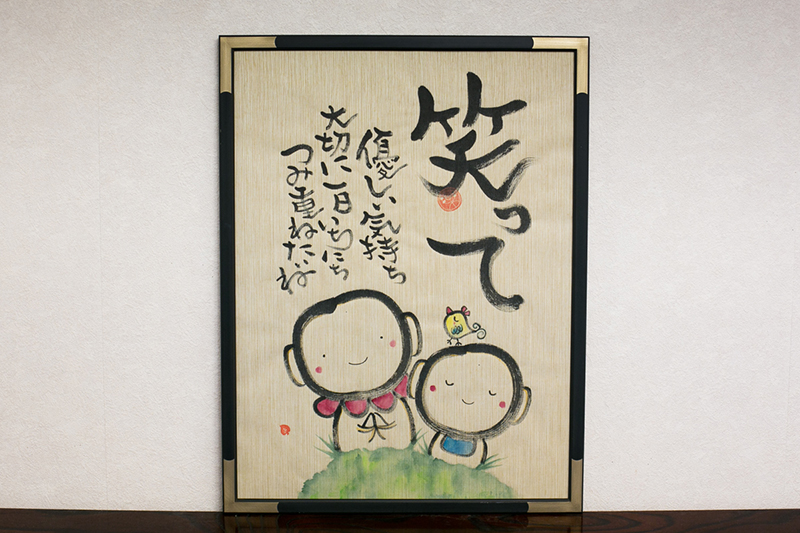 笑って
優しい気持ち
大切に一日いちにち
つみ重ねたいね